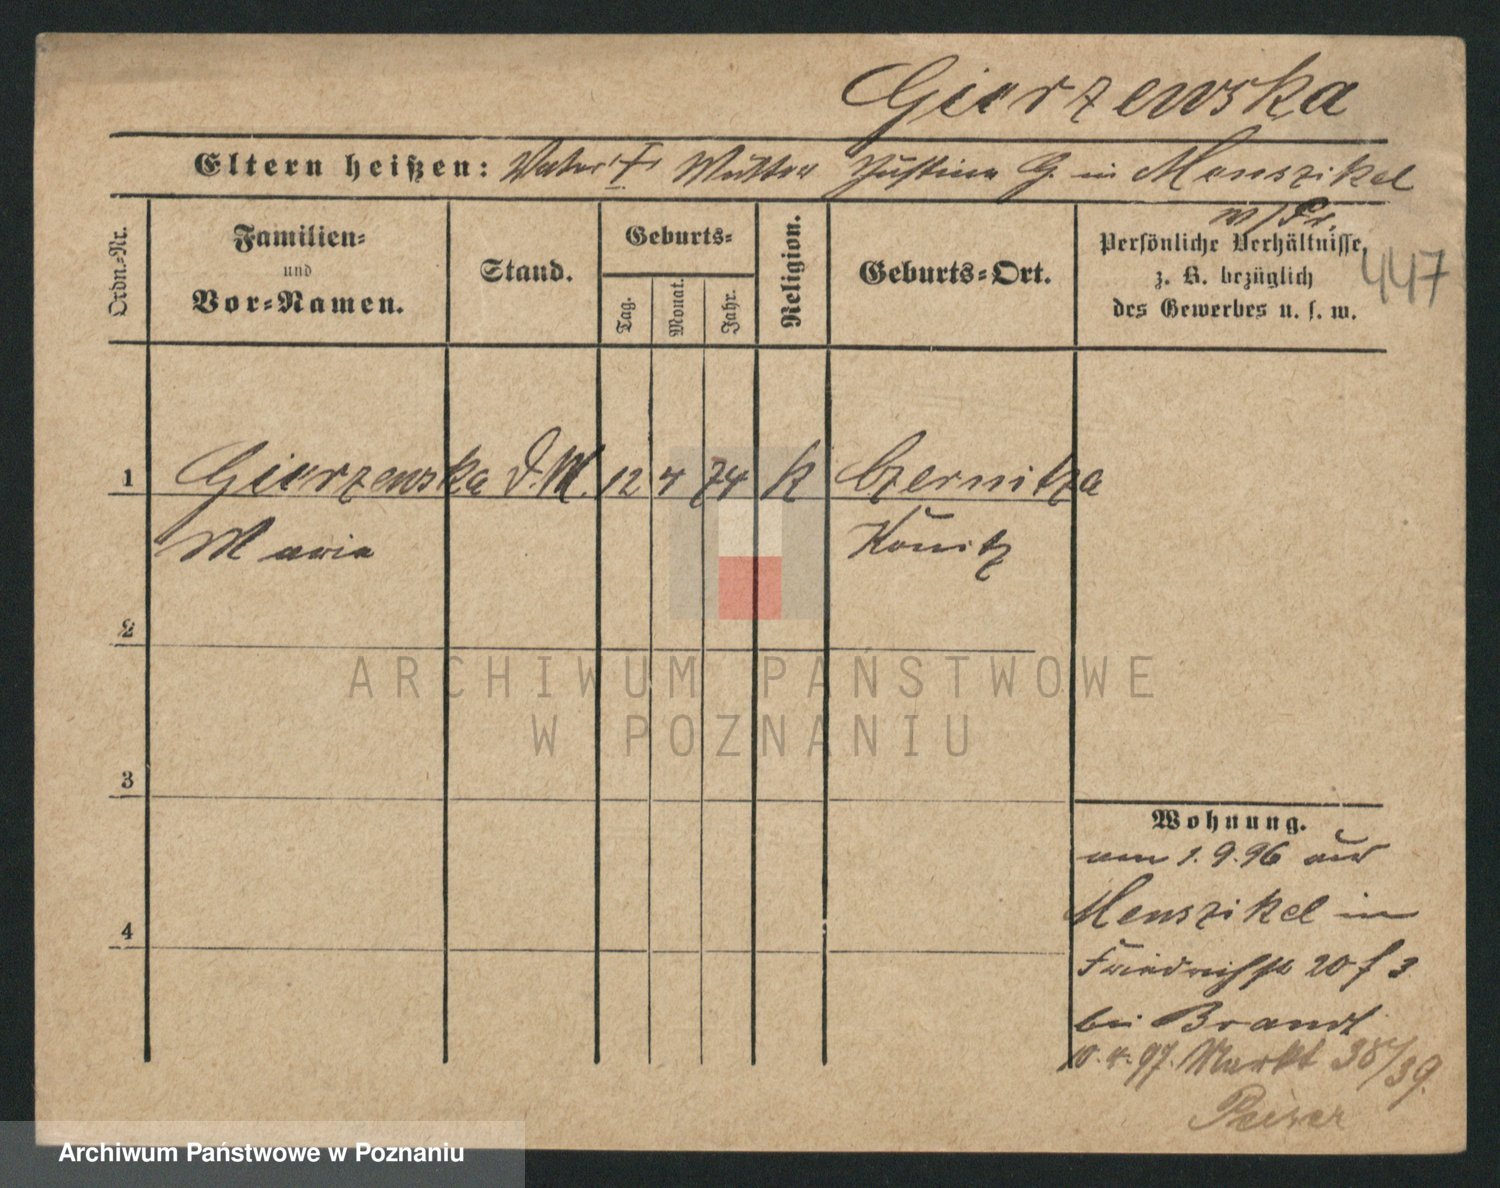 Gierzewska
Eltern heißen: Vater Mutter Justina G. in Menszikel
w/Pr.
447
Ordn.-Nr.
Familien-
und
Vor-Namen.
Stand.
Geburts-
Tag.
Monat.
Jahr.
Religion.
Geburts-Ort.
Persönliche Verhältnisse,
z. B. bezüglich
des Gewerbes u. s. w.
1 Gierzewska D.M. 12 4 74 k Czernitza
Maria Konitz
2
3
4
Wohnung.
am 1.9.96 aus
Menszikel in
Friedrichstr 20 f 3
bei Brandt
10.4.97. Markt 38/39.
Peiser
ARCHIWUM PAŃSTWOWE
W POZNANIU
Archiwum Państwowe w Poznaniu